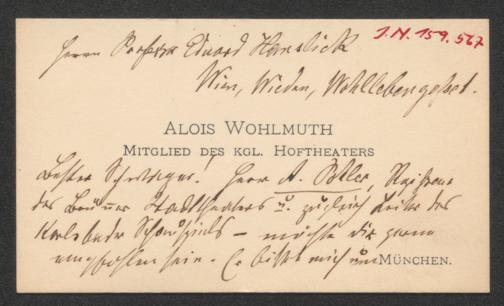 Herrn Professor Eduard Hanslick
J.N. 159.567
Wien, Wieden, Wohllebengasse.
ALOIS WOHLMUTH
MITGLIED DES KGL. HOFTHEATERS
Bester Schwager! Herr A. Soller, Regisseur
des Brünner Stadttheaters u. zugleich Leiter des
Karlsbader Schauspiels – möchte dir gerne
empfohlen sein. Er bittet mich um
MÜNCHEN.